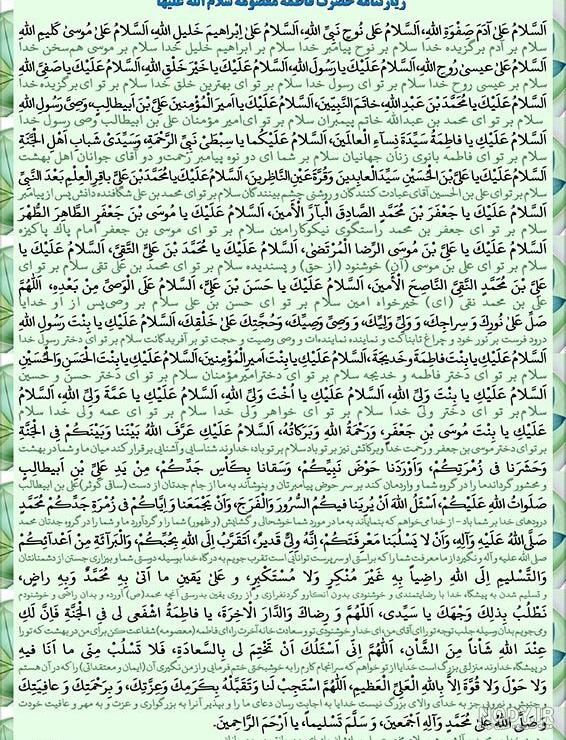 زیارتنامه حضرت فاطمه معصومه سلام الله علیها
اَلسَّلامُ عَلیٰ آدَمَ صَفْوَةِ اللهِ، اَلسَّلامُ عَلیٰ نُوحٍ نَبِیِّ اللهِ، اَلسَّلامُ عَلیٰ اِبْراهیمَ خَلیلِ اللهِ، اَلسَّلامُ عَلیٰ مُوسیٰ کَلیمِ اللهِ
سلام بر آدم برگزیده خدا سلام بر نوح پیامبر خدا سلام بر ابراهیم خلیل خدا سلام بر موسی هم‌سخن خدا
اَلسَّلامُ عَلیٰ عیسیٰ رُوحِ اللهِ، اَلسَّلامُ عَلَیْکَ یا رَسُولَ اللهِ، اَلسَّلامُ عَلَیْکَ یا خَیْرَ خَلْقِ اللهِ، اَلسَّلامُ عَلَیْکَ یا صَفِیَّ اللهِ
سلام بر عیسی روح خدا سلام بر تو ای رسول خدا سلام بر تو ای بهترین خلق خدا سلام بر تو ای برگزیده خدا
اَلسَّلامُ عَلَیْکَ یا مُحَمَّدَ بْنَ عَبْدِ اللهِ، خاتَمَ النَّبِیّینَ، اَلسَّلامُ عَلَیْکَ یا اَمیرَ الْمُؤْمِنینَ عَلِیَّ بْنَ اَبیطالِبٍ، وَصِیَّ رَسُولِ اللهِ
سلام بر تو ای محمد بن عبدالله خاتم پیمبران سلام بر تو ای امیرمؤمنان علی بن ابیطالب وصی رسول خدا
اَلسَّلامُ عَلَیْکِ یا فاطِمَةُ سَیِّدَةَ نِسآءِ الْعالَمینَ، اَلسَّلامُ عَلَیْکُما یا سِبْطَیْ نَبِیِّ الرَّحْمَةِ، وَسَیِّدَیْ شَبابِ اَهْلِ الْجَنَّةِ
سلام بر تو ای فاطمه بانوی زنان جهانیان سلام بر شما ای دو نوه پیامبر رحمت و دو آقای جوانان اهل بهشت
اَلسَّلامُ عَلَیْکَ یا عَلِیَّ بْنَ الْحُسَیْنِ سَیِّدَ الْعابِدینَ وَقُرَّةَ عَیْنِ النّاظِرینَ، اَلسَّلامُ عَلَیْکَ یا مُحَمَّدَ بْنَ عَلِیٍّ باقِرَ الْعِلْمِ بَعْدَ النَّبِیِّ
سلام بر تو ای علی بن الحسین آقای عبادت کنندگان و روشنی چشم بینندگان سلام بر تو ای محمد بن علی شکافنده دانش پس از پیامبر
اَلسَّلامُ عَلَیْکَ یا جَعْفَرَ بْنَ مُحَمَّدٍ الصّادِقَ الْبآرَّ الْأَمینَ، اَلسَّلامُ عَلَیْکَ یا مُوسَی بْنَ جَعْفَرٍ الطّاهِرَ الطُّهْرَ
سلام بر تو ای جعفر بن محمد راستگوی نیکوکار امین سلام بر تو ای موسی بن جعفر امام پاک پاکیزه
اَلسَّلامُ عَلَیْکَ یا عَلِیَّ بْنَ مُوسَی الرِّضا الْمُرْتَضیٰ، اَلسَّلامُ عَلَیْکَ یا مُحَمَّدَ بْنَ عَلِیٍّ التَّقِیَّ، اَلسَّلامُ عَلَیْکَ یا
سلام بر تو ای علی بن موسی (آن) خوشنود (از حق) و پسندیده سلام بر تو ای محمد بن علی تقی سلام بر تو ای
عَلِیَّ بْنَ مُحَمَّدٍ النَّقِیَّ النّاصِحَ الْأَمینَ، اَلسَّلامُ عَلَیْکَ یا حَسَنَ بْنَ عَلِیٍّ، اَلسَّلامُ عَلَی الْوَصِیِّ مِنْ بَعْدِهِ، اَللّهُمَّ
علی بن محمد نقی (ای) خیرخواه امین سلام بر تو ای حسن بن علی سلام بر وصی پس از او خدایا
صَلِّ عَلیٰ نُورِکَ وَ سِراجِکَ، وَ وَلِیِّ وَلِیِّکَ، وَ وَصِیِّ وَصِیِّکَ، وَحُجَّتِکَ عَلیٰ خَلْقِکَ، اَلسَّلامُ عَلَیْکِ یا بِنْتَ رَسُولِ اللهِ
درود فرست بر نور خود و چراغ تابناکت و نماینده نماینده‌ات و وصی وصیت و حجت تو بر آفریدگانت سلام بر تو ای دختر رسول خدا
اَلسَّلامُ عَلَیْکِ یا بِنْتَ فاطِمَةَ وَ خَدیجَةَ، اَلسَّلامُ عَلَیْکِ یا بِنْتَ اَمیرِ الْمُؤْمِنینَ، اَلسَّلامُ عَلَیْکِ یا بِنْتَ الْحَسَنِ وَالْحُسَیْنِ
سلام بر تو ای دختر فاطمه و خدیجه سلام بر تو ای دختر امیرمؤمنان سلام بر تو ای دختر حسن و حسین
اَلسَّلامُ عَلَیْکِ یا بِنْتَ وَلِیِّ اللهِ، اَلسَّلامُ عَلَیْکِ یا اُخْتَ وَلِیِّ اللهِ، اَلسَّلامُ عَلَیْکِ یا عَمَّةَ وَلِیِّ اللهِ، اَلسَّلامُ
سلام بر تو ای دختر ولی خدا سلام بر تو ای خواهر ولی خدا سلام بر تو ای عمه ولی خدا سلام
عَلَیْکِ یا بِنْتَ مُوسَی بْنِ جَعْفَرٍ، وَرَحْمَةُ اللهِ وَبَرَکاتُهُ، اَلسَّلامُ عَلَیْکِ عَرَّفَ اللهُ بَیْنَنا وَبَیْنَکُمْ فِی الْجَنَّةِ
بر تو ای دختر موسی بن جعفر و رحمت خدا و برکاتش نیز بر تو باد سلام بر تو باد، خداوند شناسایی و آشنایی برقرار کند میان ما و شما در بهشت
وَحَشَرَنا فی زُمْرَتِکُمْ، وَاَوْرَدَنا حَوْضَ نَبِیِّکُمْ، وَسَقانا بِکَاْسِ جَدِّکُمْ، مِنْ یَدِ عَلِیِّ بْنِ اَبیطالِبٍ
و محشور گرداند ما را در گروه شما و واردمان کند بر سر حوض پیامبرتان و بنوشاند به ما از جام جدتان از دست (ساقی کوثر) علی بن ابیطالب
صَلَواتُ اللهِ عَلَیْکُمْ، اَسْئَلُ اللهَ اَنْ یُرِیَنا فیکُمُ السُّرُورَ وَالْفَرَجَ، وَاَنْ یَجْمَعَنا وَ اِیّاکُمْ فی زُمْرَةِ جَدِّکُمْ مُحَمَّدٍ
درودهای خدا بر شما باد - از خدا می‌خواهم که بنمایاند به ما در مورد شما خوشحالی و گشایش (و ظهور) شما را و گردآورد ما و شما را در گروه جدتان محمد
صَلَّی اللهُ عَلَیْهِ وَآلِهِ، وَاَنْ لا یَسْلُبَنا مَعْرِفَتَکُمْ، اِنَّهُ وَلِیٌّ قَدیرٌ، اَتَقَرَّبُ اِلَی اللهِ بِحُبِّکُمْ، وَالْبَرآئَةِ مِنْ اَعْدآئِکُمْ
صلی الله علیه و آله و نگیرد از ما معرفت شما را که براستی او سرپرست توانایی است تقرب جویم به درگاه خدا بوسیله دوستی شما و بیزاری جستن از دشمنانتان
وَالتَّسْلیمِ اِلَی اللهِ راضِیاً بِهِ غَیْرَ مُنْکِرٍ وَلا مُسْتَکْبِرٍ، وَ عَلیٰ یَقینِ ما اَتیٰ بِهِ مُحَمَّدٌ وَبِهِ راضٍ،
و تسلیم شدن به پیشگاه خدا با رضایتمندی و خوشنودی بدون انکار و گردنفرازی و از روی یقین بدرستی آنچه محمد(ص) آورده و بدان راضی و خوشنودم
نَطْلُبُ بِذلِکَ وَجْهَکَ یا سَیِّدی، اَللّهُمَّ وَ رِضاکَ وَالدّارَ الْآخِرَةَ، یا فاطِمَةُ اشْفَعی لی فِی الْجَنَّةِ فَاِنَّ لَکِ
و می‌جویم بدان وسیله جلب توجه تو را ای آقای من ای خدا و خشنودی تو و سعادت خانه آخرت را، ای فاطمه (معصومه) شفاعت کن برای من در بهشت که تو را
عِنْدَ اللهِ شَاْناً مِنَ الشَّاْنِ، اَللّهُمَّ اِنّی اَسْئَلُکَ اَنْ تَخْتِمَ لی بِالسَّعادَةِ، فَلا تَسْلُبْ مِنّی ما اَنَا فیهِ
در پیشگاه خداوند منزلتی بزرگ است خدایا از تو خواهم که سرانجام کارم را به خوشبختی ختم فرمایی و از من نگیری آن (ایمان و معتقداتی) را که در آن هستم
وَلا حَوْلَ وَلا قُوَّةَ اِلّا بِاللهِ الْعَلِیِّ الْعَظیمِ، اَللّهُمَّ اسْتَجِبْ لَنا وَتَقَبَّلْهُ بِکَرَمِکَ وَعِزَّتِکَ، وَ بِرَحْمَتِکَ وَ عافِیَتِکَ
و جنبش و نیرویی جز به خدای والای بزرگ نیست خدایا به اجابت رسان دعای ما را و بپذیر آنرا به بزرگواری و عزت و به مهر و عافیت خودت
وَ صَلَّی اللهُ عَلیٰ مُحَمَّدٍ وَآلِهِ اَجْمَعینَ، وَ سَلَّمَ تَسْلیماً، یا اَرْحَمَ الرّاحِمینَ.